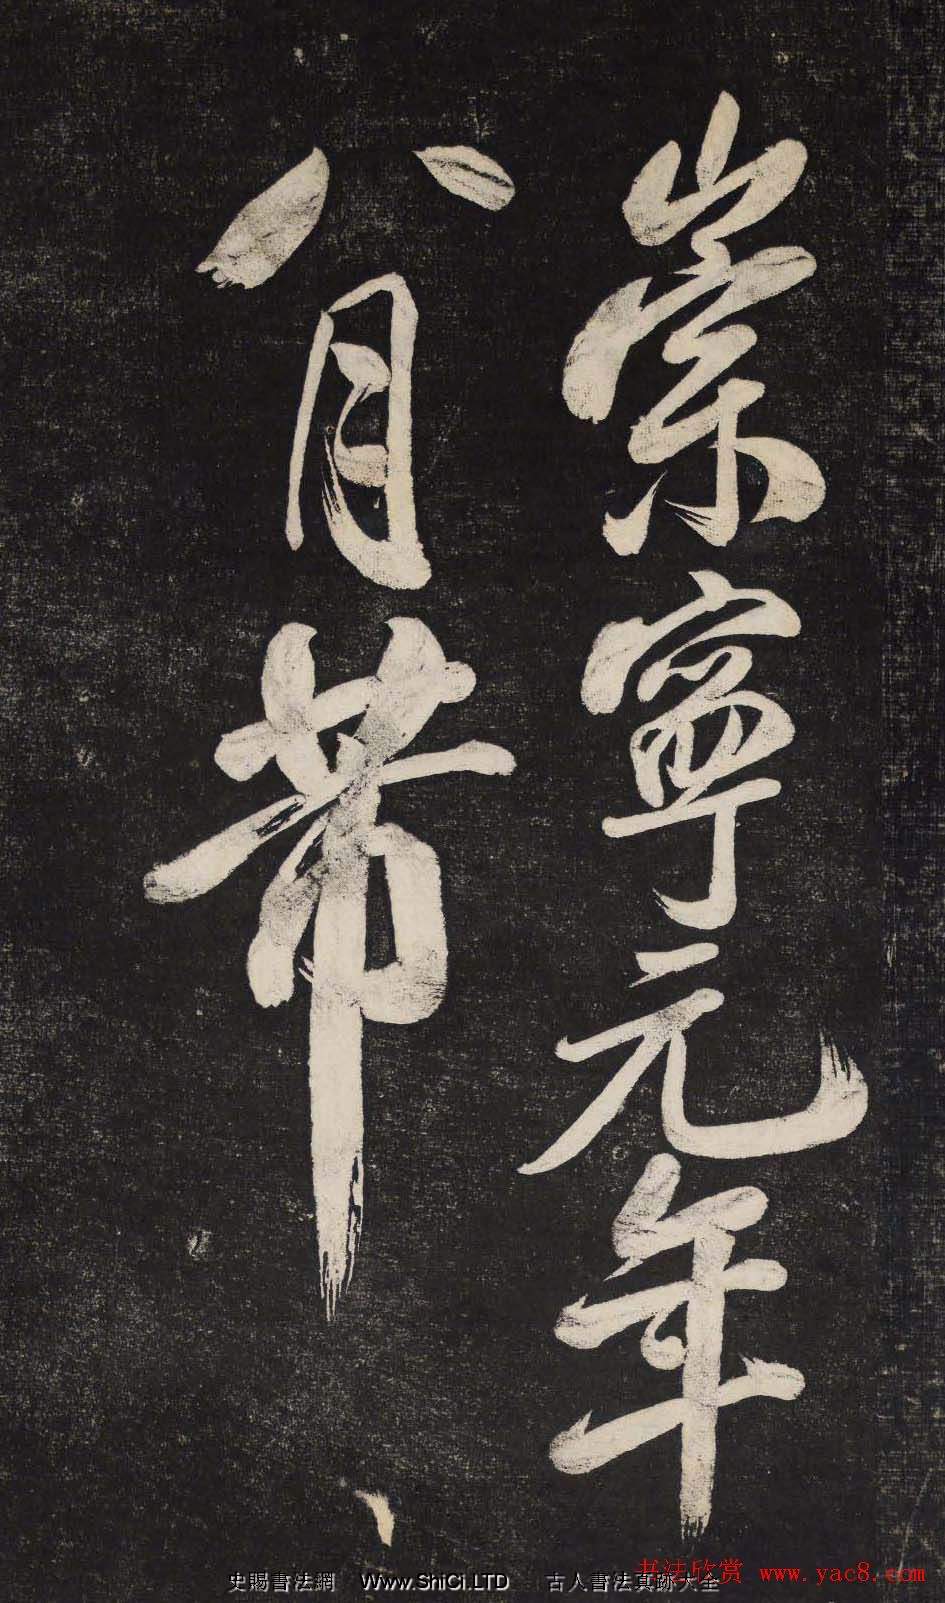 崇寧元年
八月芾
史賜書法網 Www.ShiCi.LTD 古人書法真跡大全
书法欣赏 www.yac8.com